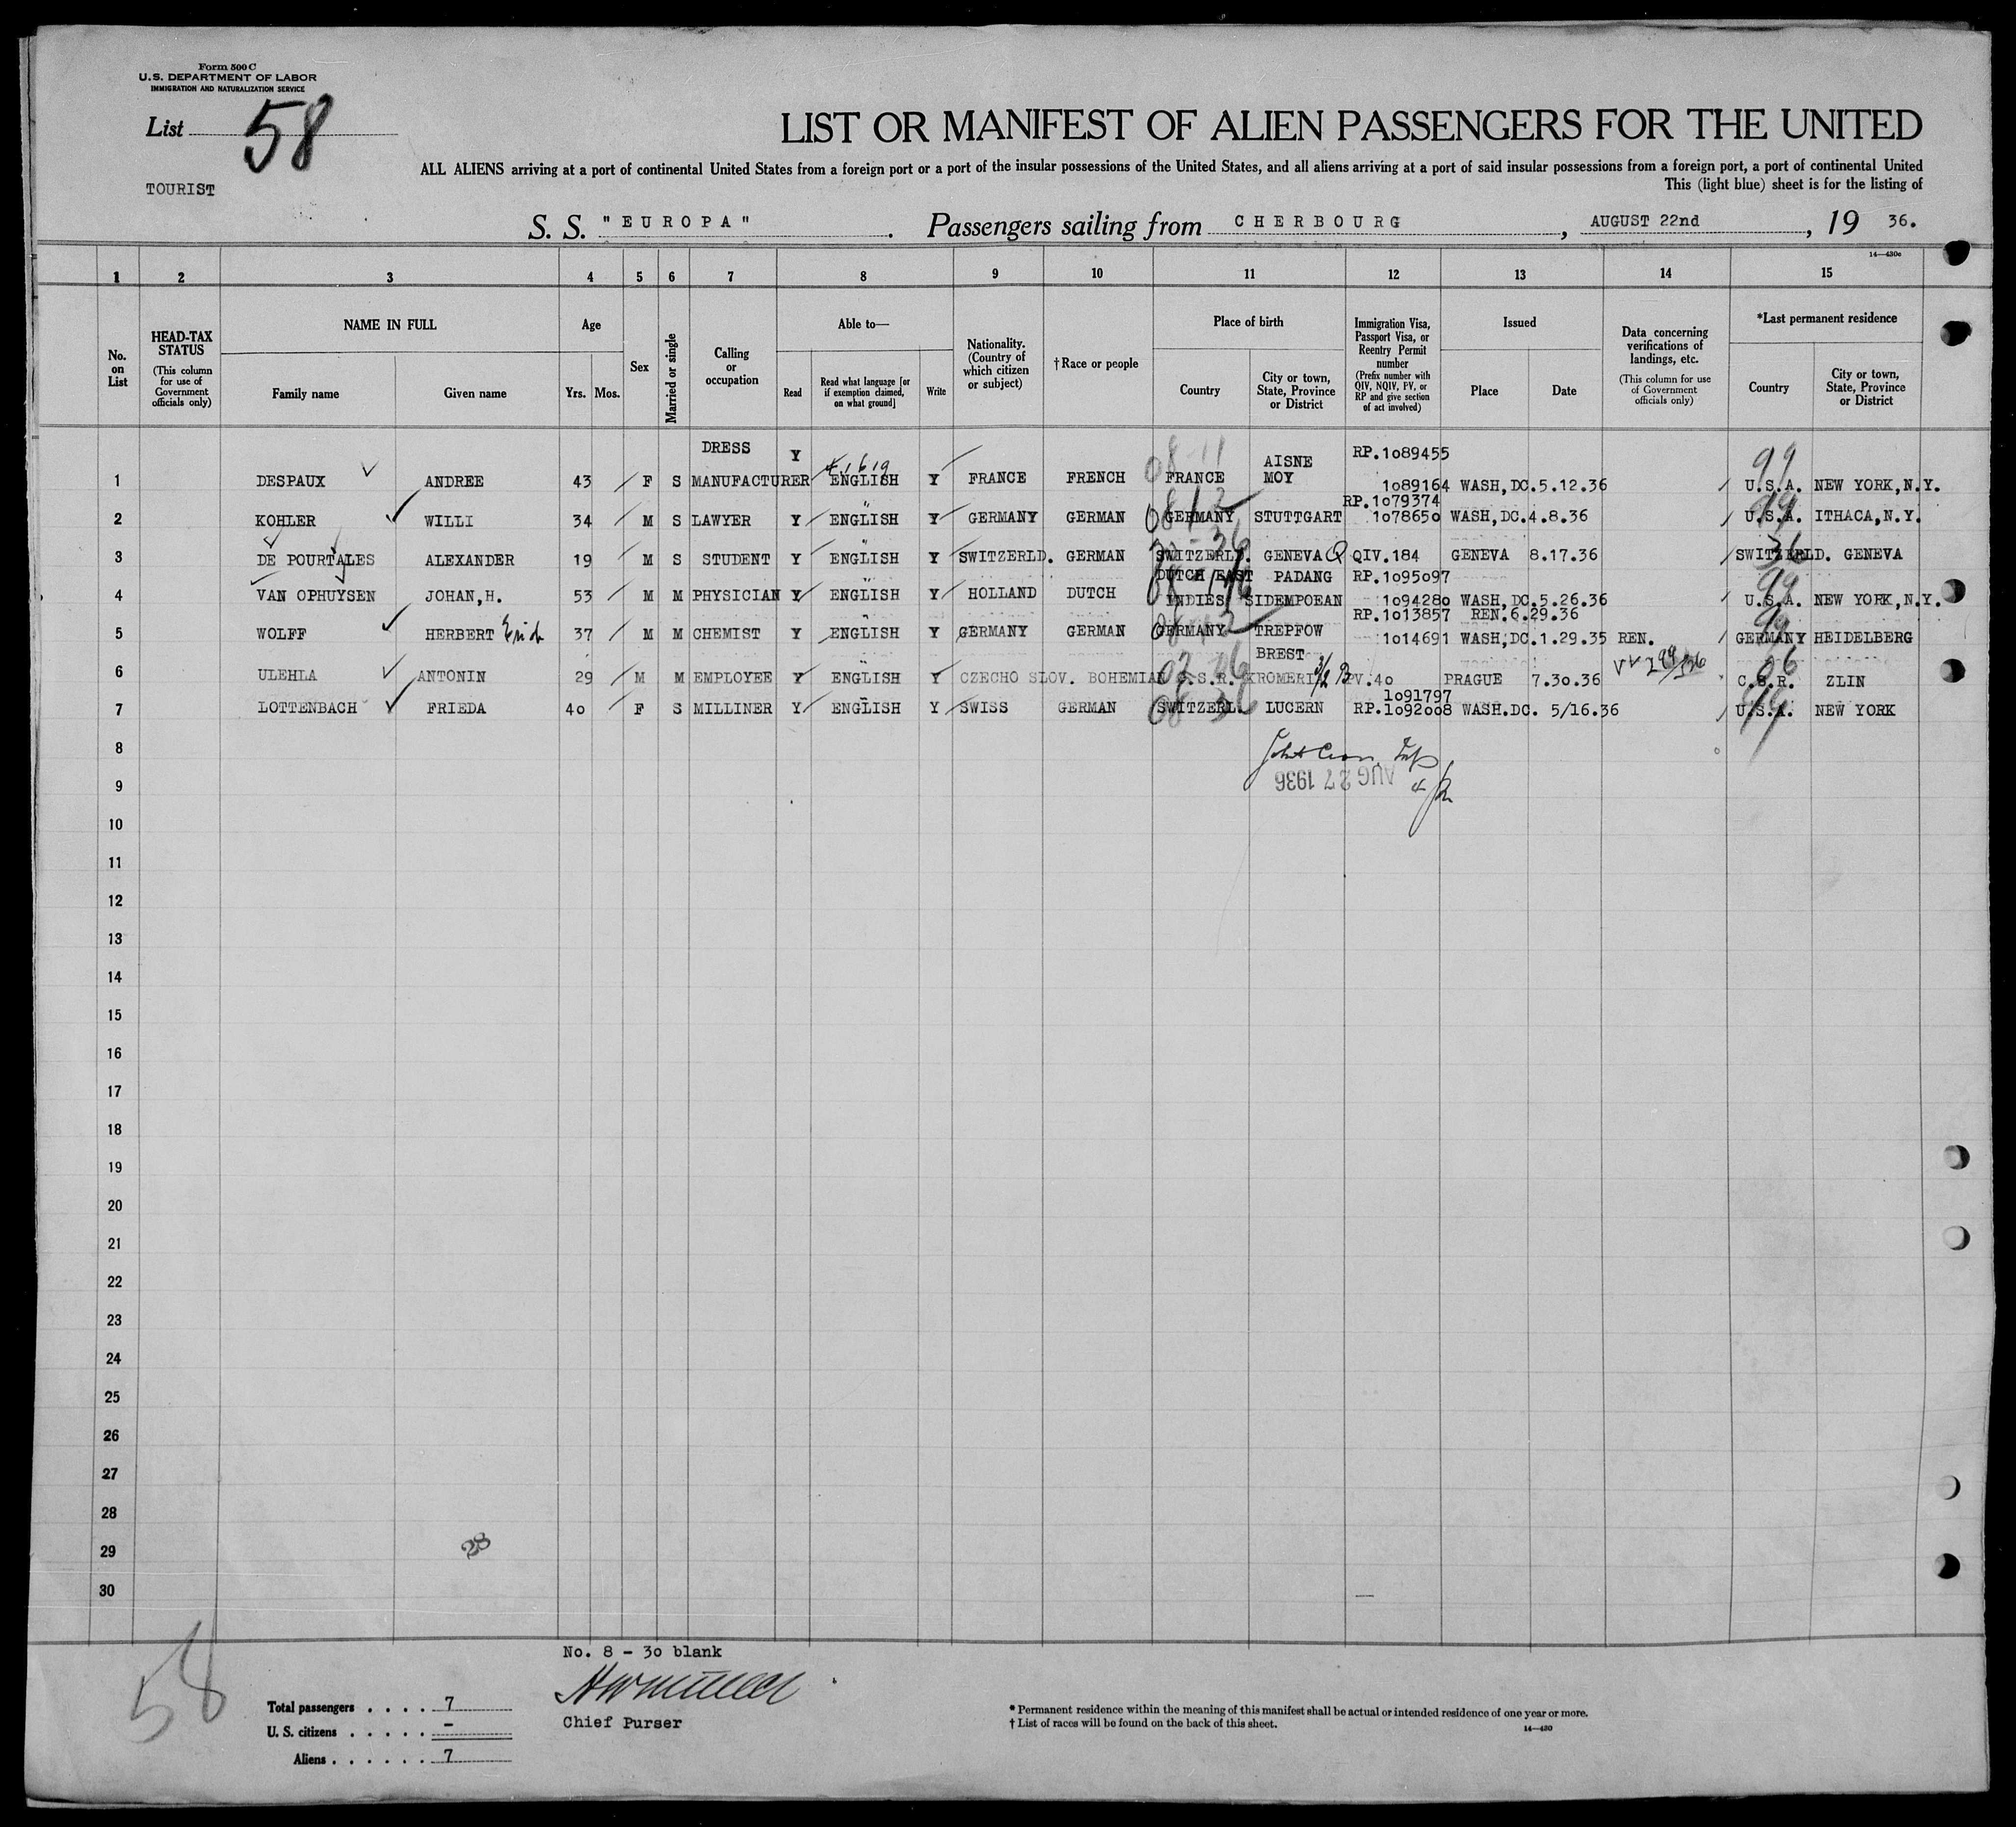 Form 500 C
U.S. DEPARTMENT OF LABOR
IMMIGRATION AND NATURALIZATION SERVICE
List 58
TOURIST
LIST OR MANIFEST OF ALIEN PASSENGERS FOR THE UNITED
ALL ALIENS arriving at a port of continental United States from a foreign port or a port of the insular possessions of the United States, and all aliens arriving at a port of said insular possessions from a foreign port, a port of continental United
This (light blue) sheet is for the listing of
S. S. "EUROPA". Passengers sailing from CHERBOURG, AUGUST 22nd, 19 36.
14—430c
1 2 3 4 5 6 7 8 9 10 11 12 13 14 15
No. on List
HEAD-TAX STATUS (This column for use of Government officials only)
NAME IN FULL
Family name Given name
Age
Yrs. Mos.
Sex
Married or single
Calling or occupation
Able to—
Read Read what language [or if exemption claimed, on what ground] Write
Nationality. (Country of which citizen or subject)
†Race or people
Place of birth
Country City or town, State, Province or District
Immigration Visa, Passport Visa, or Reentry Permit number (Prefix number with QIV, NQIV, PV, or RP and give section of act involved)
Issued
Place Date
Data concerning verifications of landings, etc. (This column for use of Government officials only)
*Last permanent residence
Country City or town, State, Province or District
DRESS Y AISNE RP.1089455 99
1 DESPAUX ANDREE 43 F S MANUFACTURER ENGLISH Y FRANCE FRENCH FRANCE MOY 1089164 WASH,DC.5.12.36 U.S.A. NEW YORK,N.Y.
RP.1079374
2 KOHLER WILLI 34 M S LAWYER Y ENGLISH Y GERMANY GERMAN GERMANY STUTTGART 1078650 WASH,DC.4.8.36 U.S.A. ITHACA,N.Y.
3 DE POURTALES ALEXANDER 19 M S STUDENT Y ENGLISH Y SWITZERLD. GERMAN SWITZERLD. GENEVA Q QIV.184 GENEVA 8.17.36 SWITZERLD. GENEVA
DUTCH EAST PADANG RP.1095097
4 VAN OPHUYSEN JOHAN,H. 53 M M PHYSICIAN Y ENGLISH Y HOLLAND DUTCH INDIES SIDEMPOEAN 1094280 WASH,DC.5.26.36 U.S.A. NEW YORK,N.Y.
RP.1013857 REN.6.29.36
5 WOLFF HERBERT Erich 37 M M CHEMIST Y ENGLISH Y GERMANY GERMAN GERMANY TREPFOW 1014691 WASH,DC.1.29.35 REN. GERMANY HEIDELBERG
BREST
6 ULEHLA ANTONIN 29 M M EMPLOYEE Y ENGLISH Y CZECHO SLOV. BOHEMIAN C.S.R. KROMERI PV.40 PRAGUE 7.30.36 C.S.R. ZLIN
1091797
7 LOTTENBACH FRIEDA 40 F S MILLINER Y ENGLISH Y SWISS GERMAN SWITZERL. LUCERN RP.1092008 WASH.DC. 5/16.36 U.S.A. NEW YORK
8
9 AUG 27 1936
10
11
12
13
14
15
16
17
18
19
20
21
22
23
24
25
26
27
28
29
28
30
No. 8 - 30 blank
58
Chief Purser
Total passengers . . . . 7
U. S. citizens . . . . . –
Aliens . . . . . . 7
* Permanent residence within the meaning of this manifest shall be actual or intended residence of one year or more.
† List of races will be found on the back of this sheet.
14—430